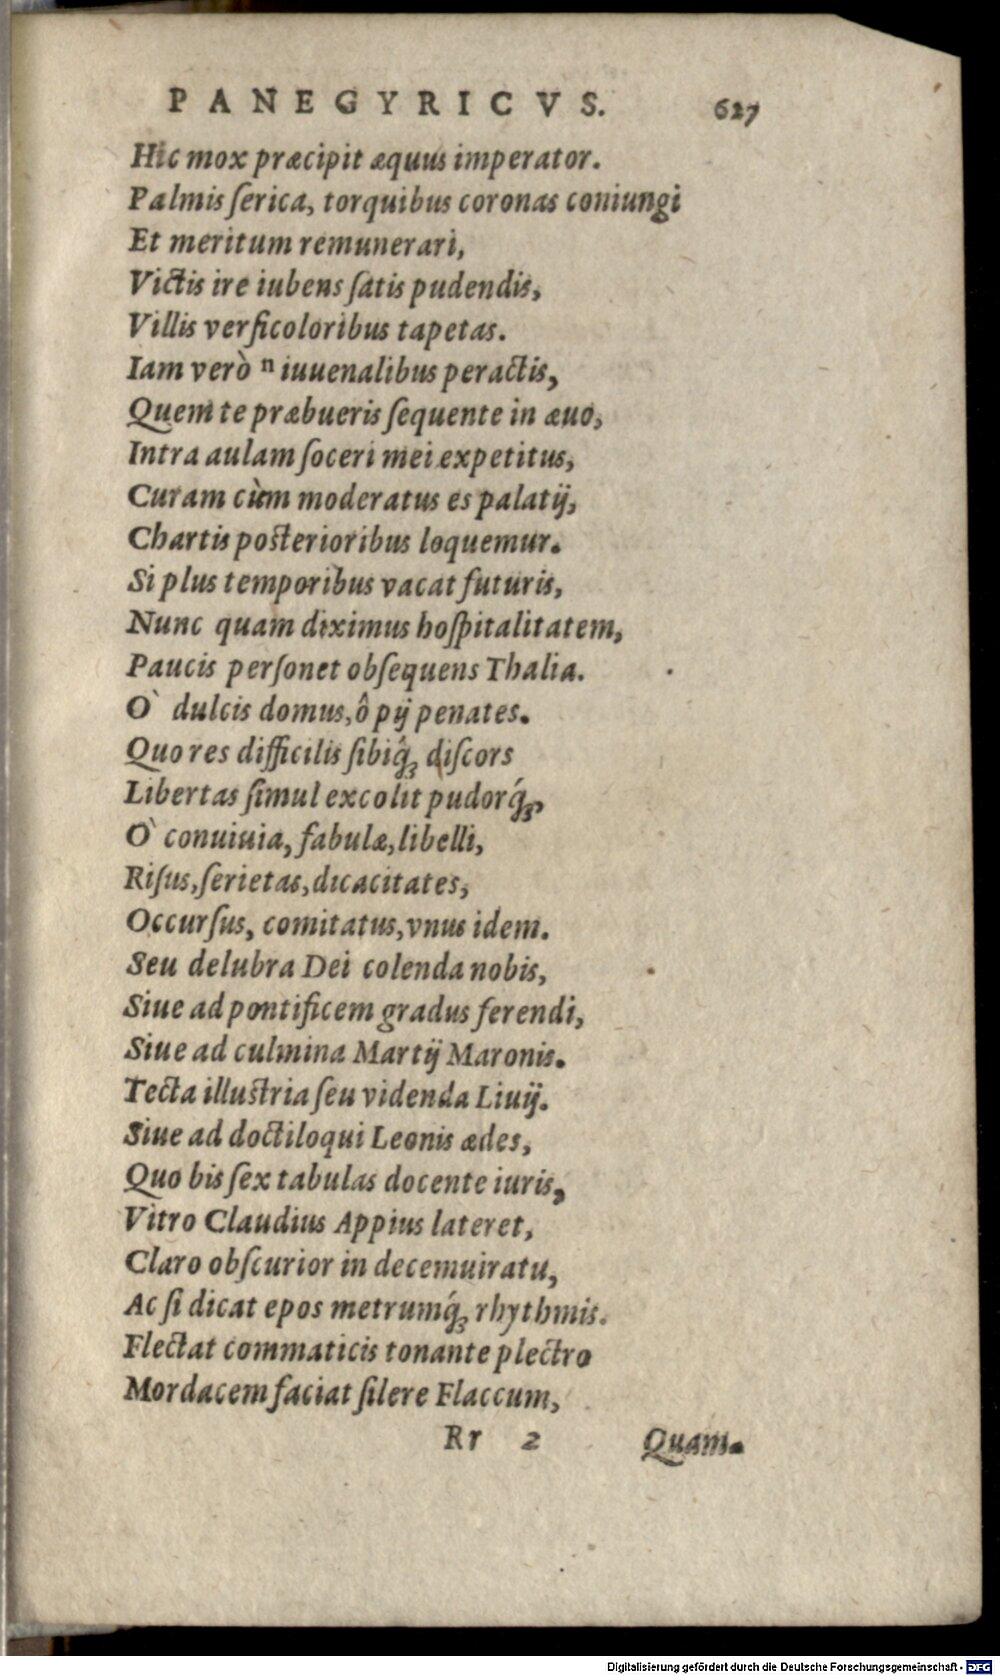 PANEGYRICVS. 627
Hic mox præcipit æquus imperator.
Palmis ſerica, torquibus coronas coniungi
Et meritum remunerari,
Victis ire iubens ſatis pudendis,
Villis verſicoloribus tapetas.
Iam verò ⁿ iuuenalibus peractis,
Quem te præbueris ſequente in æuo,
Intra aulam ſoceri mei expetitus,
Curam cùm moderatus es palatij,
Chartis posterioribus loquemur.
Si plus temporibus vacat futuris,
Nunc quam diximus hoſpitalitatem,
Paucis perſonet obſequens Thalia.
Ò dulcis domus, ô pij penates.
Quo res difficilis ſibiq́; diſcors
Libertas ſimul excolit pudorq́;,
Ò conuiuia, fabulæ, libelli,
Riſus, ſerietas, dicacitates,
Occurſus, comitatus, vnus idem.
Seu delubra Dei colenda nobis,
Siue ad pontificem gradus ferendi,
Siue ad culmina Martij Maronis.
Tecta illustria ſeu videnda Liuij.
Siue ad doctiloqui Leonis ædes,
Quo bis ſex tabulas docente iuris,
Vltro Claudius Appius lateret,
Claro obſcurior in decemuiratu,
Ac ſi dicat epos metrumq́; rhythmis.
Flectat commaticis tonante plectro
Mordacem faciat ſilere Flaccum,
Rr 2 Quam.
Digitalisierung gefördert durch die Deutsche Forschungsgemeinschaft - DFG